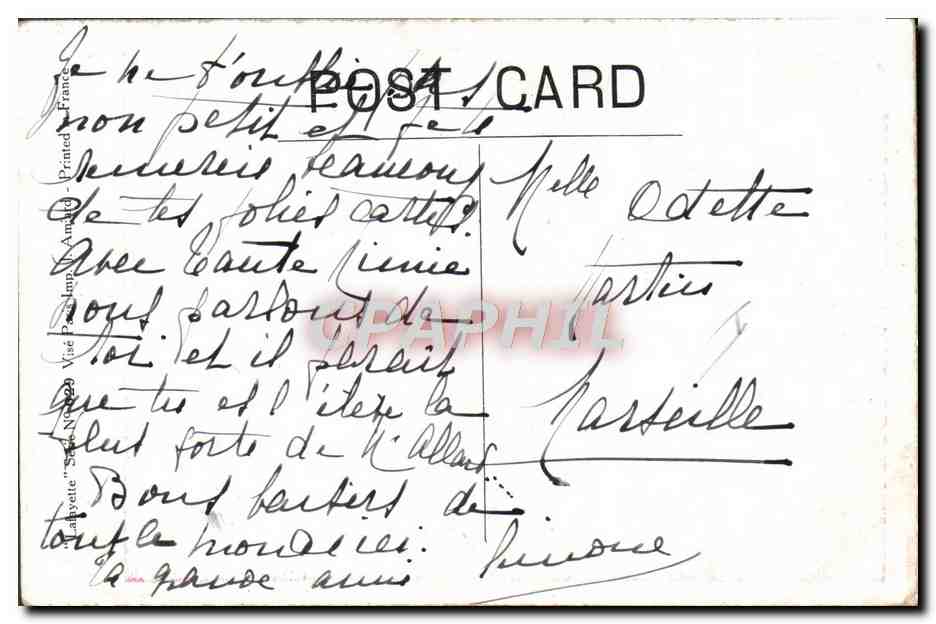 Je ne t'oublie pas
mon petit et je te
remercie beaucoup
de tes jolies cartes.
Avec Tante Mimie
nous parlons de
toi et il parait
que tu es l'élève la
plus forte de Mr Allard
Bons baisers de
tout le monde ici.
Ta grande amie Simone
POST CARD
Melle Odette
Martin
Marseille
"Lafayette" Série No 829 Visé Paris Imp. Amiard - Printed in France
CPAPHIL